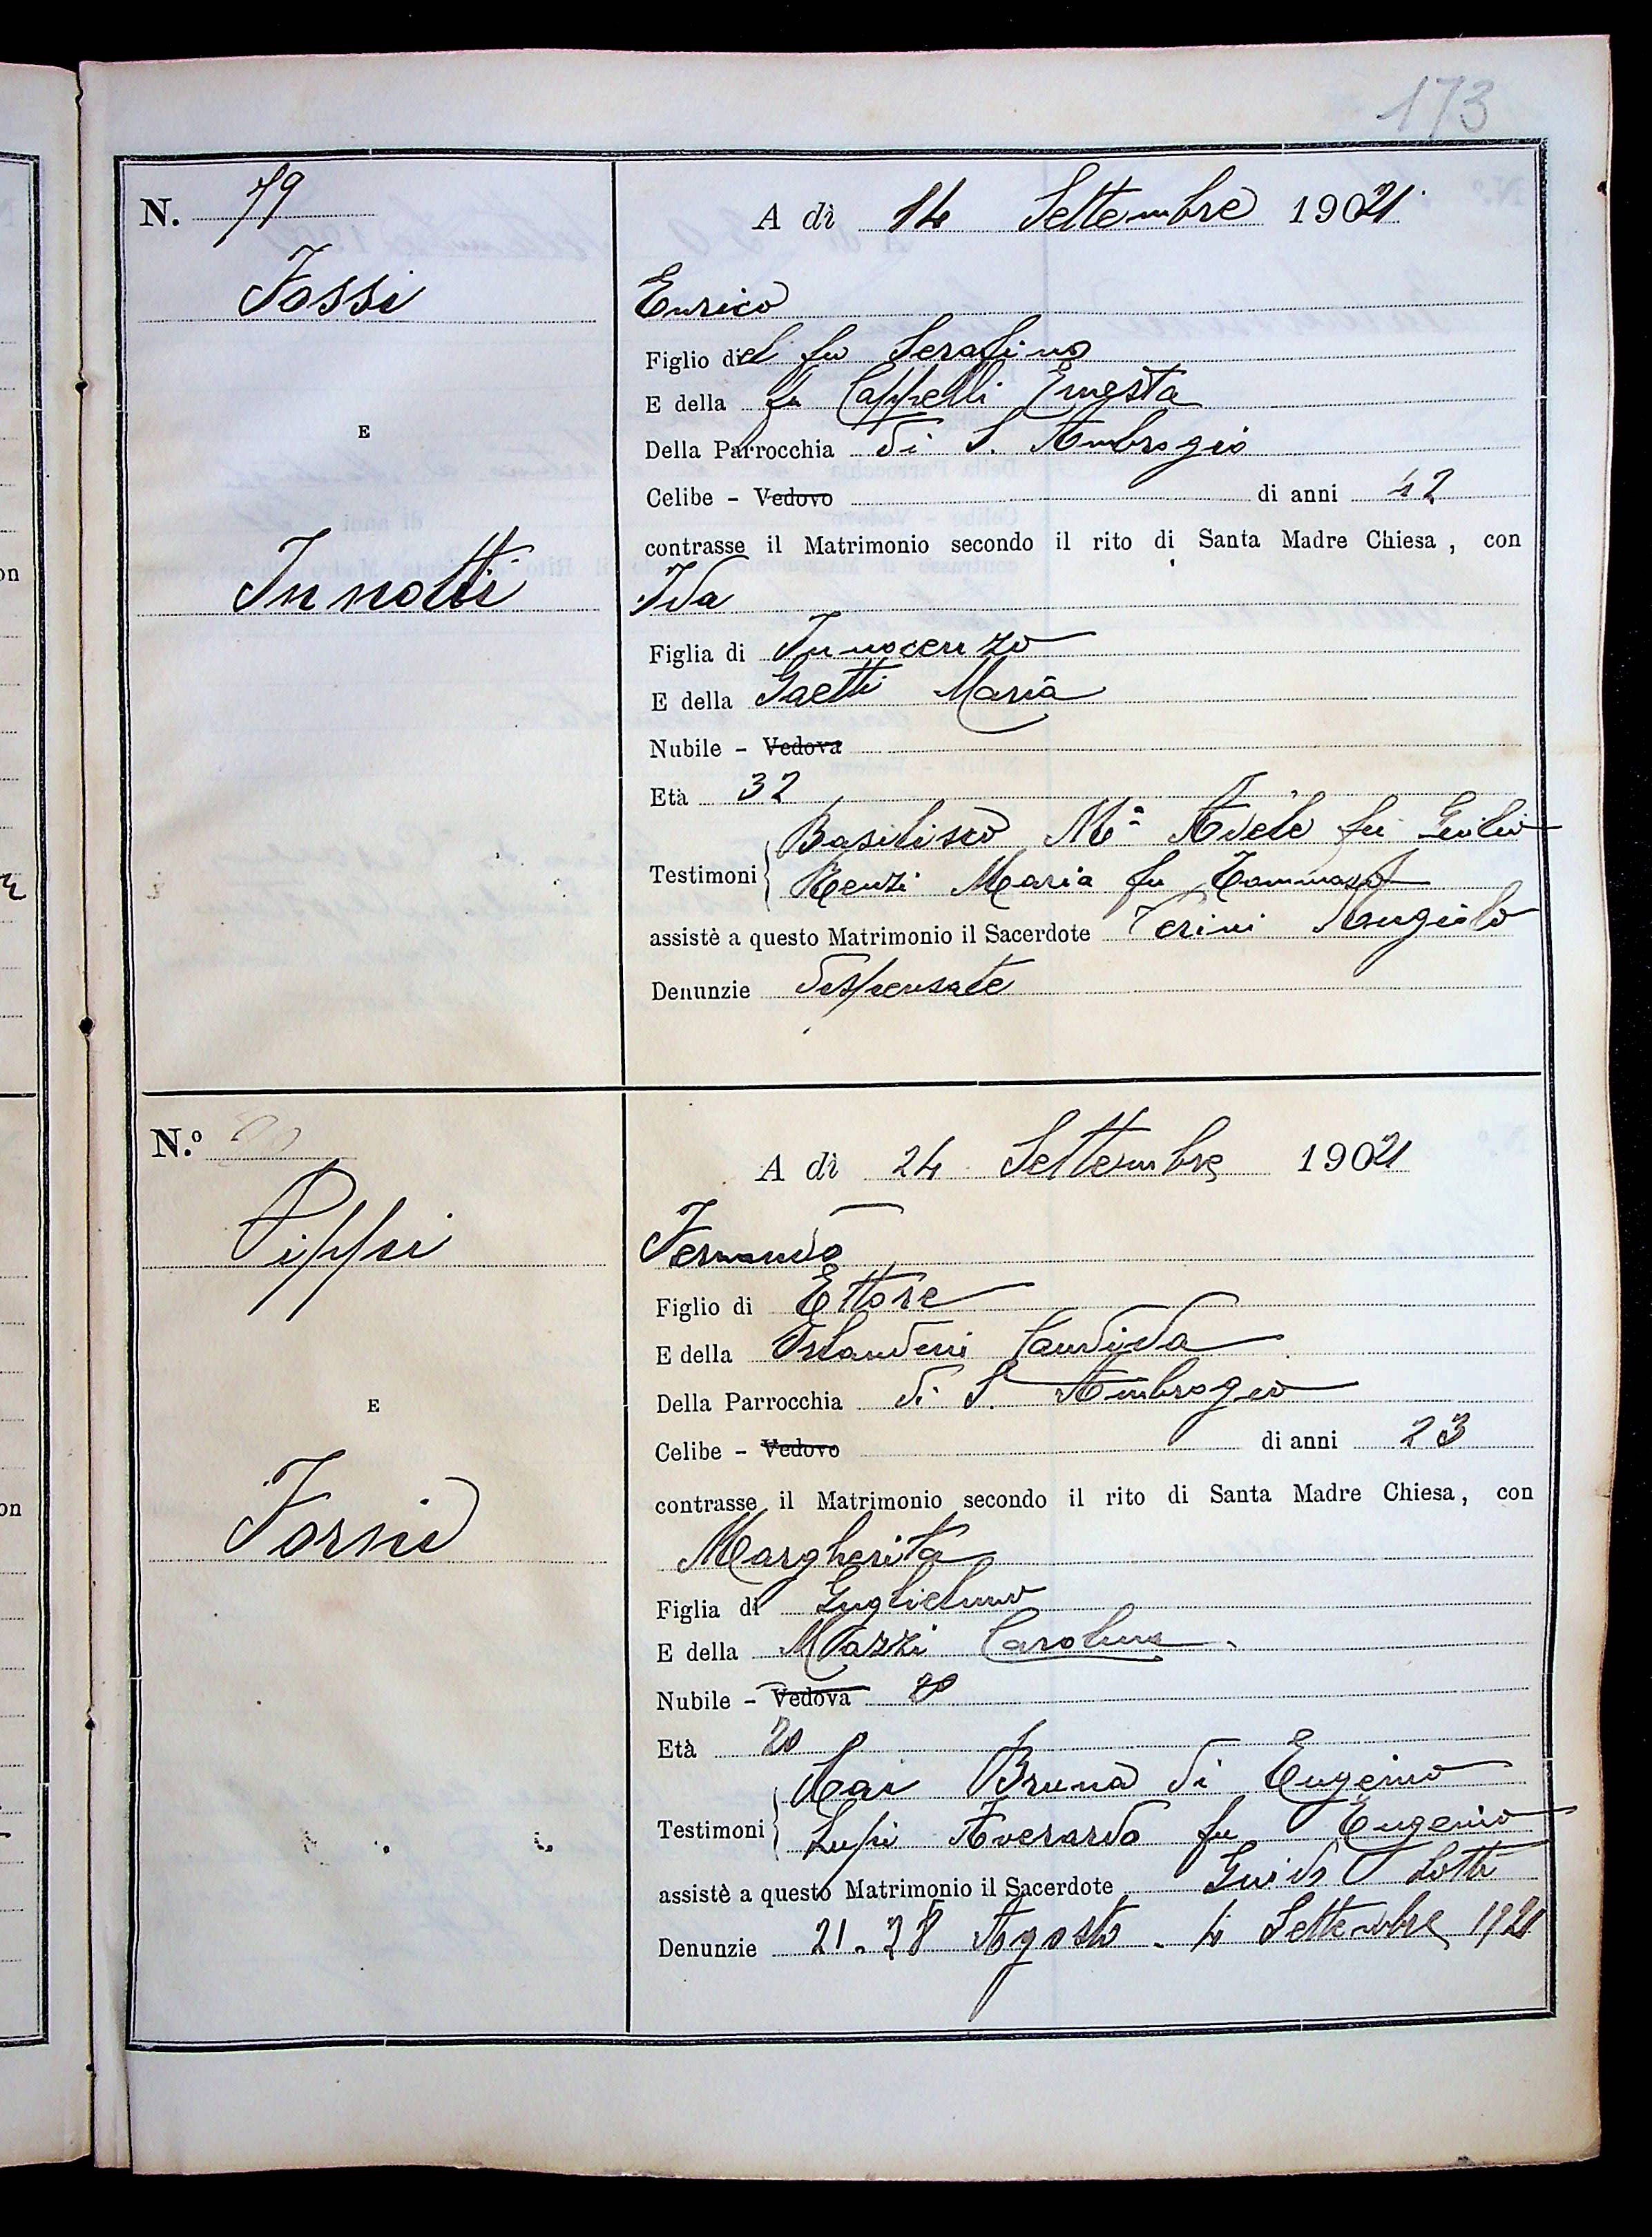 173
N. 79
A dì 14 Settembre 1921
Fossi
Enrico
Figlio del fu Serafino
E della fu Cappelli Ernesta
E
Della Parrocchia di S. Ambrogio
Celibe - Vedovo di anni 42
contrasse il Matrimonio secondo il rito di Santa Madre Chiesa, con
Innotti
Ida
Figlia di Innocenzo
E della Gaetti Maria
Nubile - Vedova
Età 32
Testimoni Basilisco Mª Adele fu Giulio
Renzi Maria fu Tommaso
assistè a questo Matrimonio il Sacerdote Terini Angiolo
Denunzie dispensate
N.º
A dì 24 Settembre 1921
Pippi
Fernando
Figlio di Ettore
E della Orlandini Candida
E
Della Parrocchia di S. Ambrogio
Celibe - Vedovo di anni 23
contrasse il Matrimonio secondo il rito di Santa Madre Chiesa, con
Forni
Margherita
Figlia di Guglielmo
E della Mazzi Carolina
Nubile - Vedova 20
Età 20
Testimoni Bruna di Eugenio
Lupi Averardo fu Eugenio
assistè a questo Matrimonio il Sacerdote Guido Lotti
Denunzie 21. 28 Agosto - 4 Settembre 1921